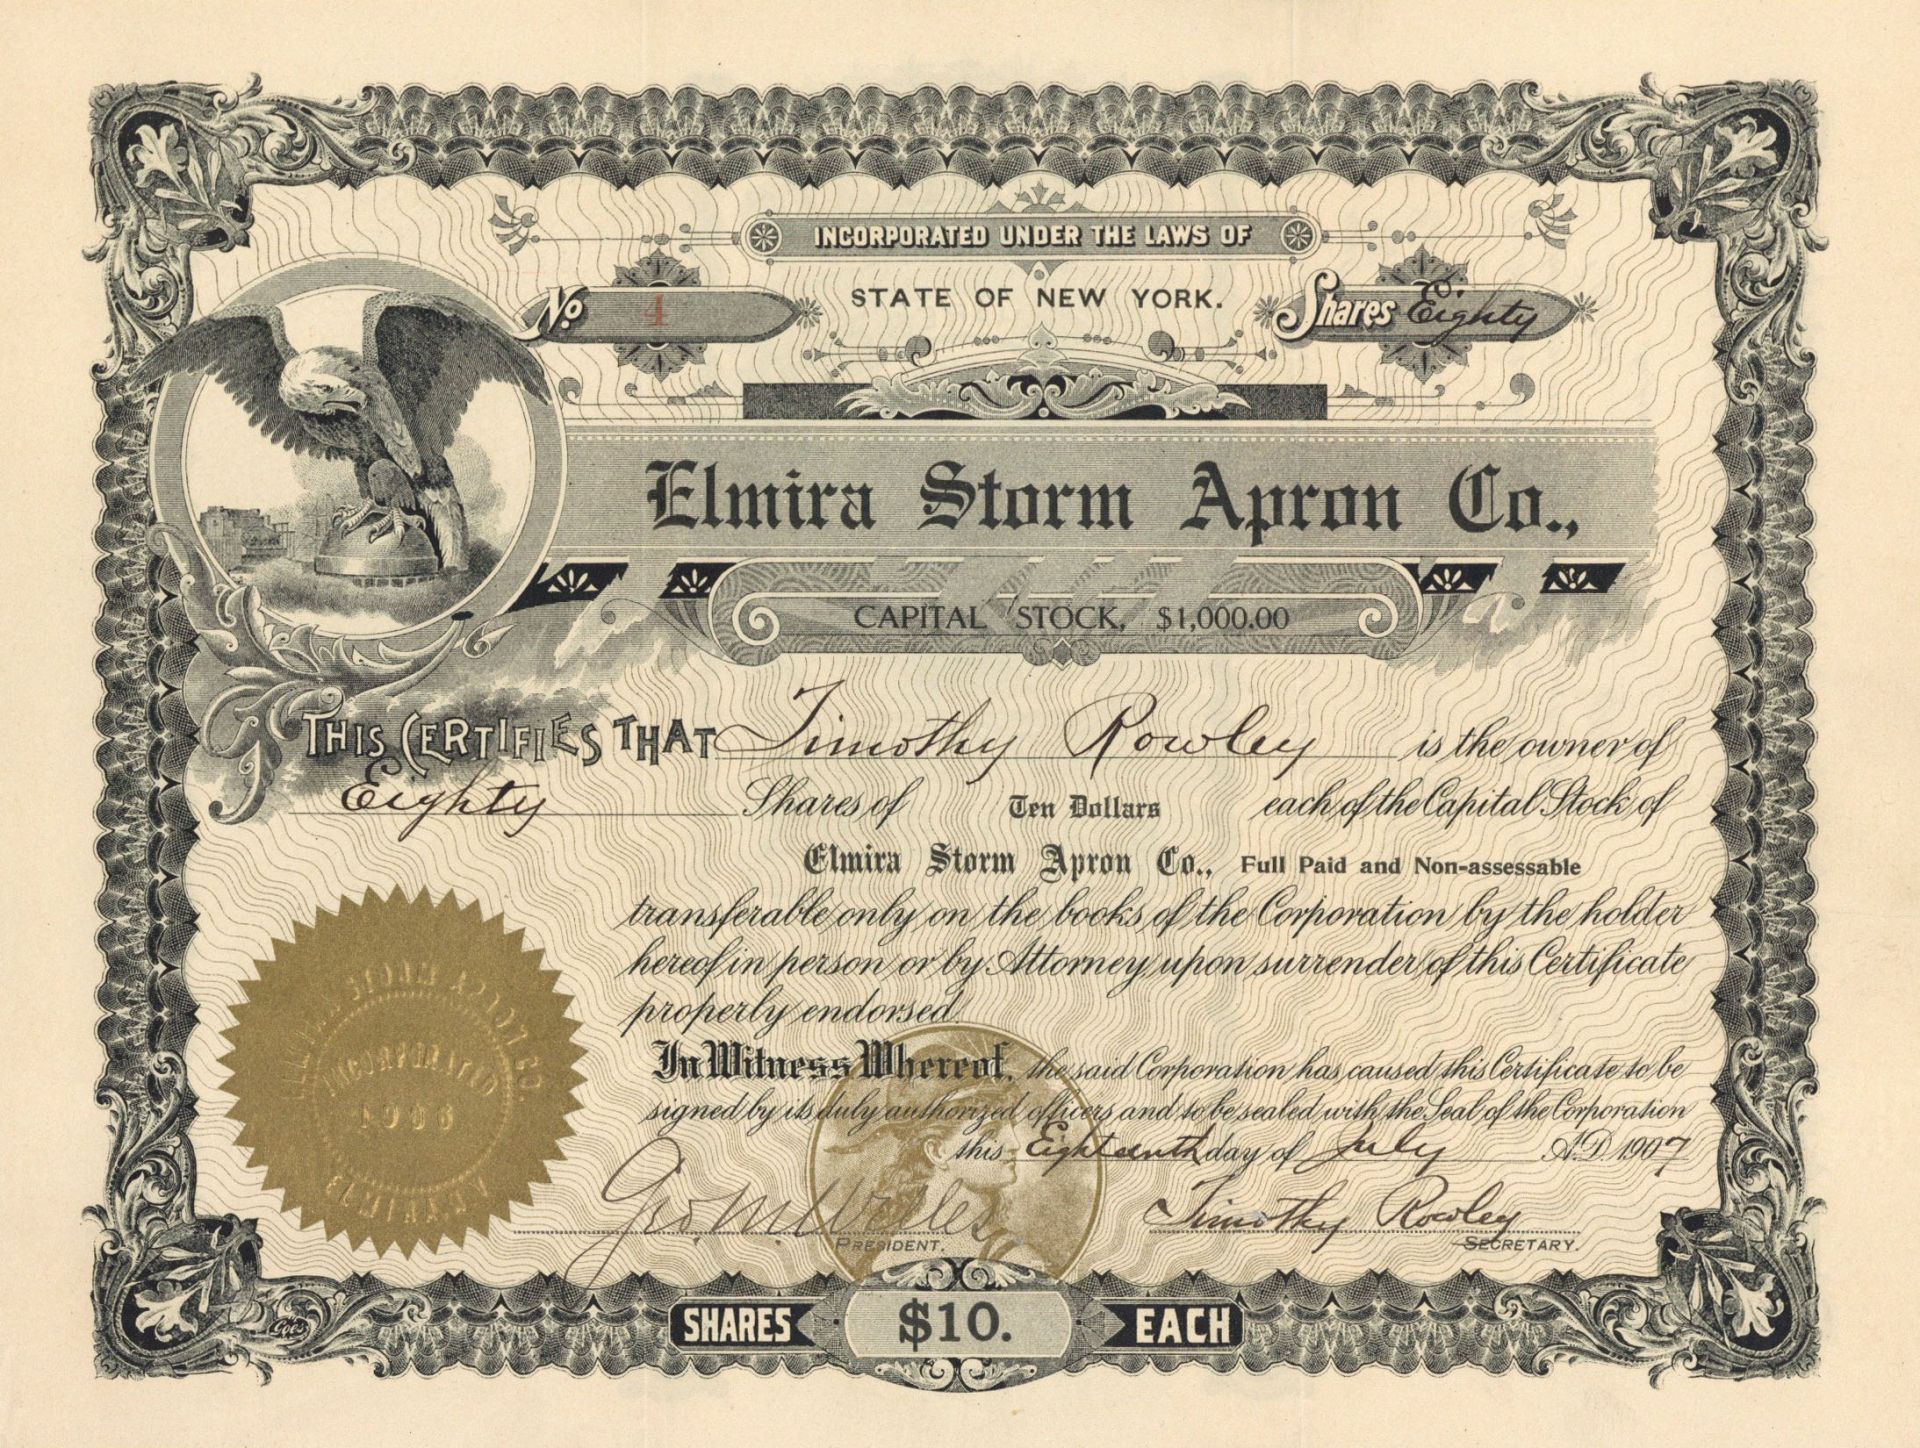 INCORPORATED UNDER THE LAWS OF
STATE OF NEW YORK.
No 4
Shares Eighty
Elmira Storm Apron Co.,
CAPITAL STOCK, $1,000.00
THIS CERTIFIES THAT Timothy Rowley is the owner of
Eighty Shares of Ten Dollars each of the Capital Stock of
Elmira Storm Apron Co., Full Paid and Non-assessable
transferable only on the books of the Corporation by the holder
hereof in person or by Attorney upon surrender of this Certificate
properly endorsed
In Witness Whereof, the said Corporation has caused this Certificate to be
signed by its duly authorized officers and to be sealed with the Seal of the Corporation
this Eighteenth day of July A.D. 1907
Geo. M. Welles
PRESIDENT.
Timothy Rowley
SECRETARY.
ELMIRA STORM APRON CO.
INCORPORATED
1906
ELMIRA, N.Y.
Goes
SHARES $10. EACH